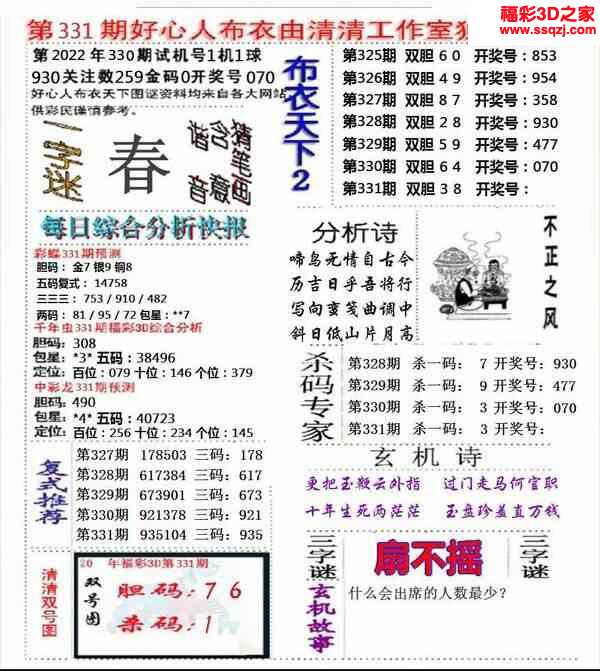 福彩3D之家
www.ssqzj.com
第331期好心人布衣由清清工作室
第2022年330期试机号1机1球
930关注数259金码0开奖号 070
好心人布衣天下图谜资料均来自各大网站
供彩民谨慎参考。
一字迷
春
猜笔画
含意
谐音
布衣天下2
第325期 双胆60 开奖号:853
第326期 双胆49 开奖号:954
第327期 双胆87 开奖号:358
第328期 双胆28 开奖号:930
第329期 双胆59 开奖号:477
第330期 双胆64 开奖号:070
第331期 双胆38 开奖号:
每日综合分析快报
彩蝶331期预测
胆码: 金7 银9 铜8
五码复式: 14758
三三三: 753 / 910 / 482
两码: 81 / 95 / 72 包星: **7
千年虫331期福彩3D综合分析
胆码: 308
包星: *3* 五码: 38496
定位: 百位: 079 十位: 146 个位: 379
中彩龙331期预测
胆码: 490
包星: *4* 五码: 40723
定位: 百位: 256 十位: 234 个位: 145
分析诗
啼鸟无情自古今
历吉日乎吾将行
写向蛮笺曲调中
斜日低山片月高
不正之风
杀码专家
第328期 杀一码: 7 开奖号:930
第329期 杀一码: 9 开奖号:477
第330期 杀一码: 3 开奖号:070
第331期 杀一码: 3 开奖号:
复式推荐
第327期 178503 三码: 178
第328期 617384 三码: 617
第329期 673901 三码: 673
第330期 921378 三码: 921
第331期 935104 三码: 935
玄机诗
更把玉鞭云外指 过门走马何官职
十年生死两茫茫 玉盘珍羞直万钱
清清双号图
20 年福彩3D第331期
双号图
胆码: 7 6
杀码: 1
三字谜
扇不摇
三字谜
玄机故事
什么会出席的人数最少？